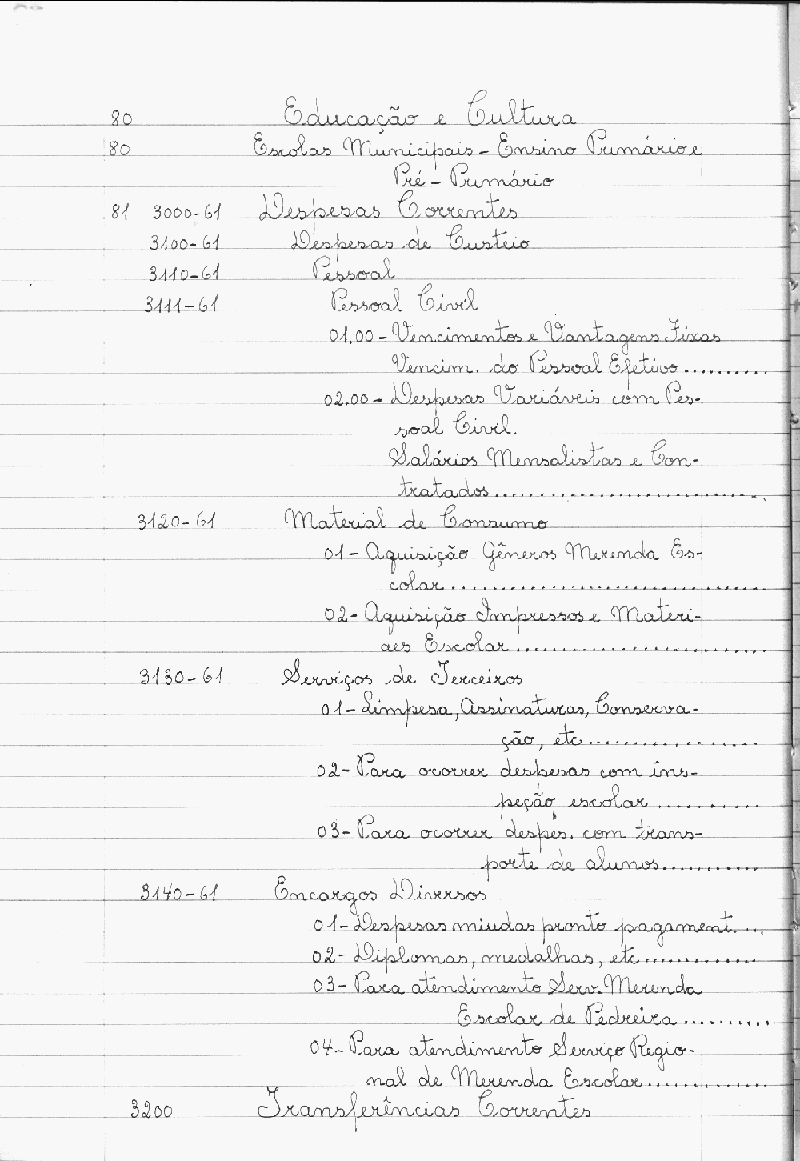 80 Educação e Cultura
80 Escolas Municipais - Ensino Primário e
Pré - Primário
81 3000-61 Despesas Correntes
3100-61 Despesas de Custeio
3110-61 Pessoal
3111-61 Pessoal Civil
01.00 - Vencimentos e Vantagens Fixas
Vencim. do Pessoal Efetivo..........
02.00 - Despesas Variáveis com Pes-
soal Civil.
Salários Mensalistas e Con-
tratados..............................
3120-61 Material de Consumo
01 - Aquisição Gêneros Merenda Es-
colar..................................
02 - Aquisição Impressos e Materi-
aes Escolar...........................
3130-61 Serviços de Terceiros
01 - Limpesa, Assinaturas, Conserva-
ção, etc..................
02 - Para ocorrer despesas com ins-
peção escolar...........
03 - Para ocorrer despes. com trans-
porte de alunos..........
3140-61 Encargos Diversos
01 - Despesas miudas pronto pagament....
02 - Diplomas, medalhas, etc............
03 - Para atendimento Serv. Merenda
Escolar de Pedreira..........
04 - Para atendimento Serviço Regio-
nal de Merenda Escolar............
3200 Transferências Correntes